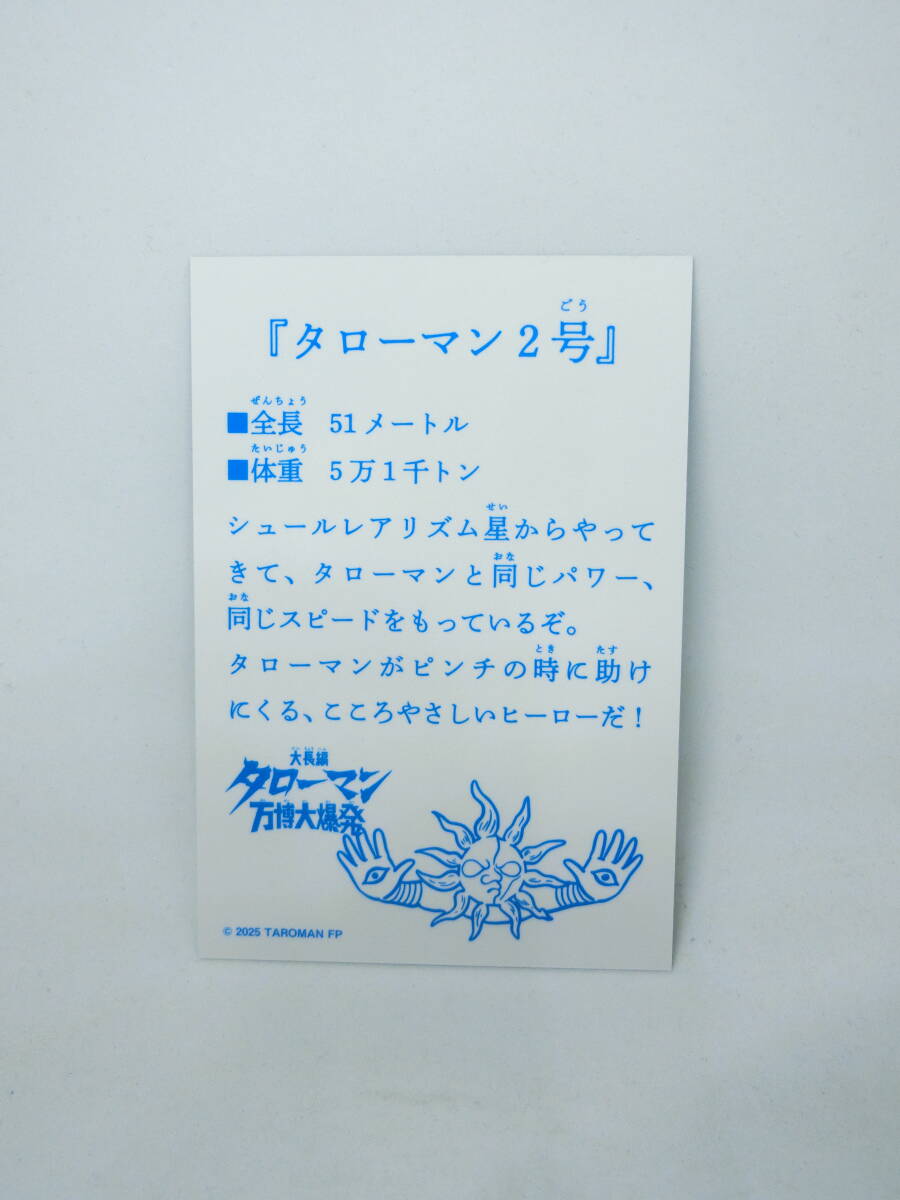 『タローマン2号』
ごう
■全長 51メートル
ぜんちょう
■体重 5万1千トン
たいじゅう
シュールレアリズム星からやって
せい
きて、タローマンと同じパワー、
おな
同じスピードをもっているぞ。
おな
タローマンがピンチの時に助け
とき たす
にくる、こころやさしいヒーローだ!
大長編
タローマン
万博大爆発
© 2025 TAROMAN FP